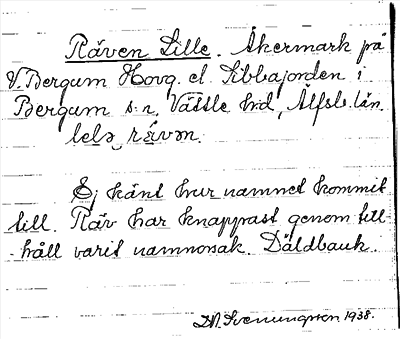 Räven Lille. Åkermark på
V. Bergum Hovg. el. Sibbajorden i
Bergum s:n, Vättle hd, Älfsb. län.
lelə rävən.
Ej känt hur namnet kommit
till. Räv har knappast genom till-
håll varit namnorsak. Däldbank.
D.A. Svenungsson 1938.